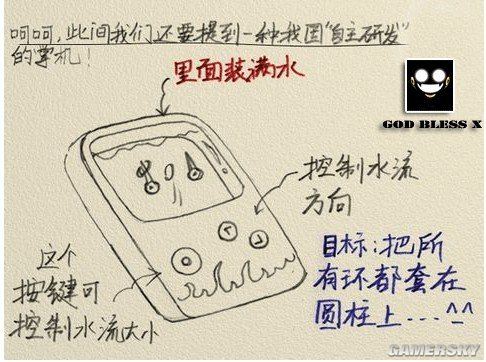 呵呵，此间我们还要提到一种我国"自主研发"
的掌机！
里面装满水
GOD BLESS X
控制水流
方向
这个
按键可
控制水流大小
目标：把所
有环都套在
圆柱上....^_^
GAMERSKY